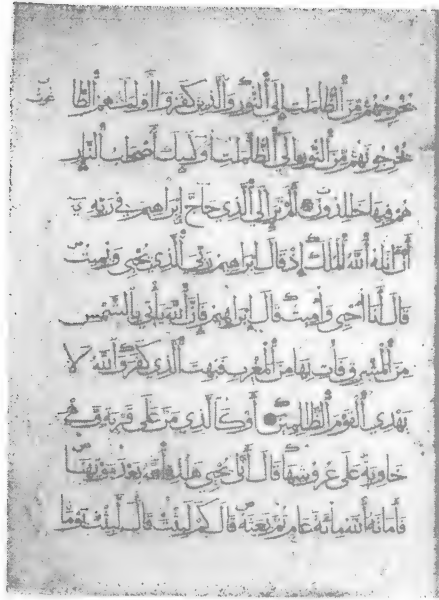 يُخْرِجُهُمْ مِنَ ٱلظُّلُمَاتِ إِلَى ٱلنُّورِ وَٱلَّذِينَ كَفَرُوا أَوْلِيَاؤُهُمُ ٱلطَّا غُوتُ
يُخْرِجُونَهُمْ مِنَ ٱلنُّورِ إِلَى ٱلظُّلُمَاتِ أُولَٰئِكَ أَصْحَٰبُ ٱلنَّارِ
هُمْ فِيهَا خَالِدُونَ أَلَمْ تَرَ إِلَى ٱلَّذِي حَاجَّ إِبْرَاهِيمَ فِي رَبِّهِ
أَنْ آتَاهُ ٱللَّهُ ٱلْمُلْكَ إِذْ قَالَ إِبْرَاهِيمُ رَبِّيَ ٱلَّذِي يُحْيِي وَيُمِيتُ
قَالَ أَنَا أُحْيِي وَأُمِيتُ قَالَ إِبْرَاهِيمُ فَإِنَّ ٱللَّهَ يَأْتِي بِٱلشَّمْسِ
مِنَ ٱلْمَشْرِقِ فَأْتِ بِهَا مِنَ ٱلْمَغْرِبِ فَبُهِتَ ٱلَّذِي كَفَرَ وَٱللَّهُ لَا
يَهْدِي ٱلْقَوْمَ ٱلظَّالِمِينَ أَوْ كَٱلَّذِي مَرَّ عَلَى قَرْيَةٍ وَهِيَ
خَاوِيَةٌ عَلَى عُرُوشِهَا قَالَ أَنَّى يُحْيِي هَٰذِهِ ٱللَّهُ بَعْدَ مَوْتِهَا
فَأَمَاتَهُ ٱللَّهُ مِائَةَ عَامٍ ثُمَّ بَعَثَهُ قَالَ كَمْ لَبِثْتَ قَالَ لَبِثْتُ يَوْمًا